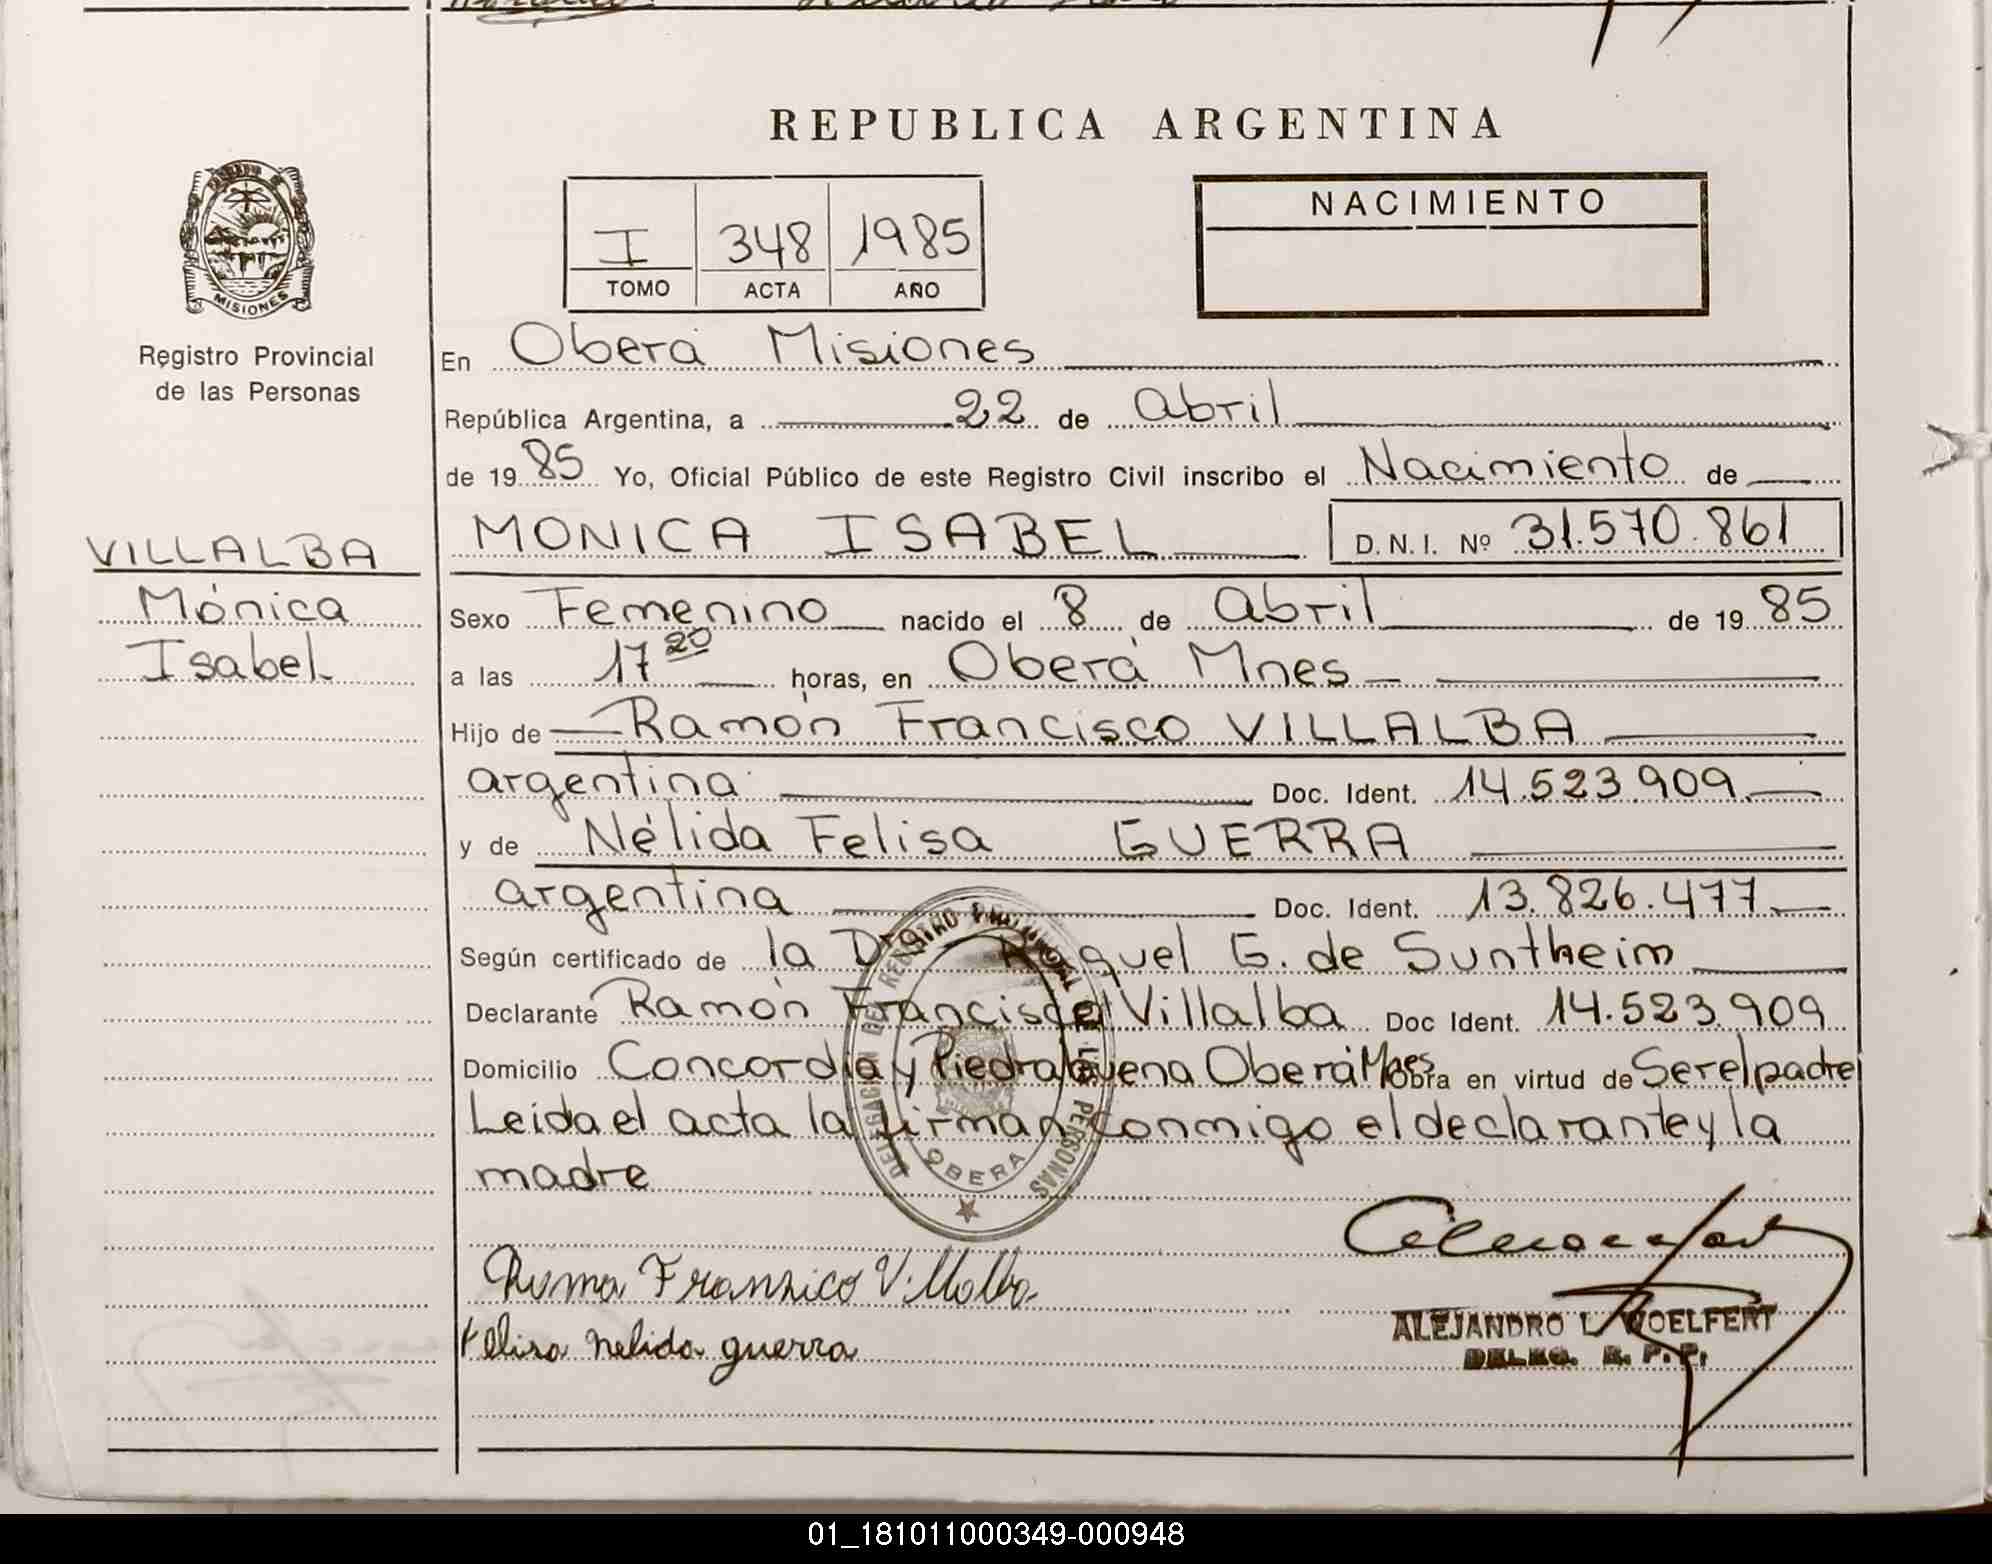 REPUBLICA ARGENTINA
MISIONES
Registro Provincial
de las Personas
VILLALBA
Mónica
Isabel
I 348 1985
TOMO ACTA AÑO
NACIMIENTO
En Oberá Misiones
República Argentina, a 22 de abril
de 1985 Yo, Oficial Público de este Registro Civil inscribo el Nacimiento de
MONICA ISABEL D.N.I. Nº 31.570.861
Sexo Femenino nacido el 8 de abril de 1985
a las 17 20 horas, en Oberá Mnes
Hijo de Ramón Francisco VILLALBA
argentina Doc. Ident. 14.523.909
y de Nélida Felisa GUERRA
argentina Doc. Ident. 13.826.477
Según certificado de la Dra. Raquel G. de Suntheim
Declarante Ramón Francisco Villalba Doc Ident. 14.523.909
Domicilio Concordia y Piedrabuena Oberá Mnes Obra en virtud de Ser el padre
Leída el acta la firman conmigo el declarante y la
madre
DELEGACION DEL REGISTRO PROVINCIAL DE LAS PERSONAS
OBERA
Roma Franzico Villalba
Felisa nelida guerra
ALEJANDRO L. WOELFERT
DELEG. R. P. P.
01_181011000349-000948